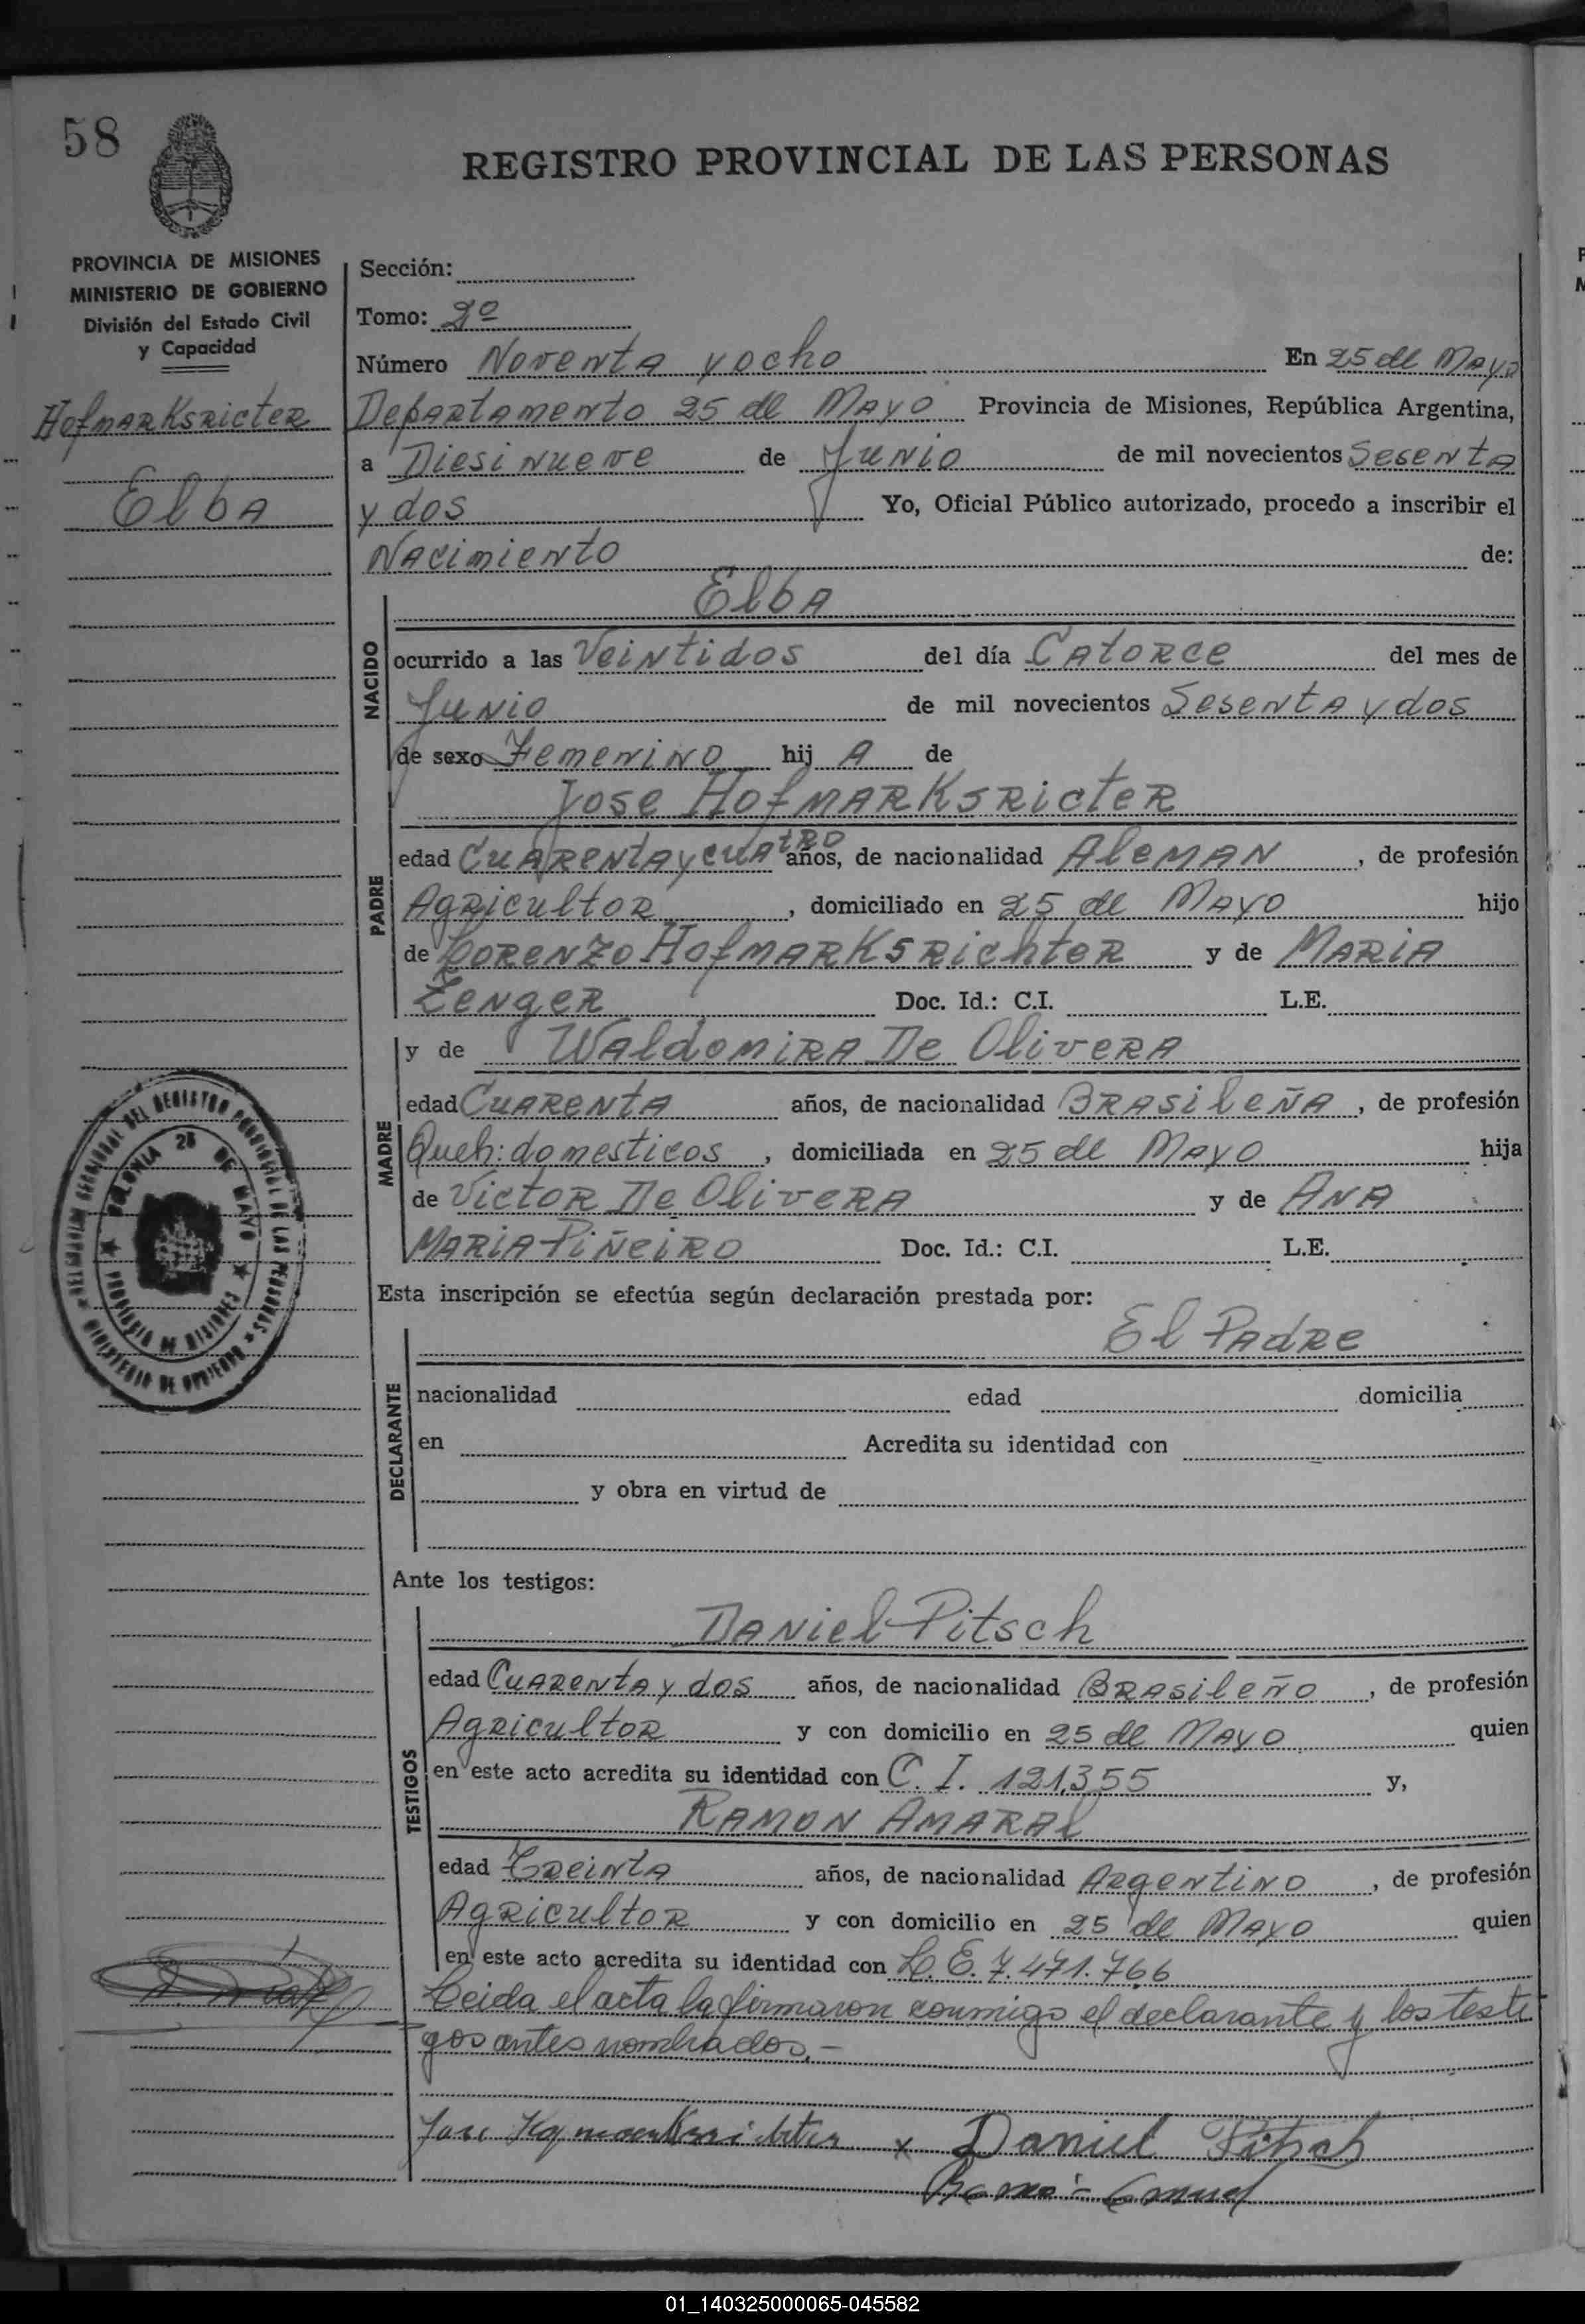 58
REGISTRO PROVINCIAL DE LAS PERSONAS
PROVINCIA DE MISIONES
MINISTERIO DE GOBIERNO
División del Estado Civil
y Capacidad
Hofmarksricter
Elba
Sección:
Tomo: 2º
Número Noventa y ocho En 25 de Mayo
Departamento 25 de Mayo Provincia de Misiones, República Argentina,
a Diesinueve de Junio de mil novecientos Sesenta
y dos Yo, Oficial Público autorizado, procedo a inscribir el
Nacimiento de:
Elba
NACIDO
ocurrido a las Veintidos del día Catorce del mes de
Junio de mil novecientos Sesenta y dos
de sexo Femenino hij A de
Jose Hofmarksricter
PADRE
edad Cuarenta y cuatro años, de nacionalidad Aleman, de profesión
Agricultor, domiciliado en 25 de Mayo hijo
de Lorenzo Hofmarksrichter y de Maria
Zenger Doc. Id.: C.I. L.E.
y de Waldomira De Olivera
MADRE
edad Cuarenta años, de nacionalidad Brasileña, de profesión
Queh: domesticos, domiciliada en 25 de Mayo hija
de Victor De Olivera y de Ana
Maria Piñeiro Doc. Id.: C.I. L.E.
COLONIA 25 DE MAYO
PROVINCIA DE MISIONES
MINISTERIO DE GOBIERNO
Esta inscripción se efectúa según declaración prestada por:
El Padre
DECLARANTE
nacionalidad edad domicilia
en Acredita su identidad con
y obra en virtud de
Ante los testigos:
Daniel Pitsch
TESTIGOS
edad Cuarenta y dos años, de nacionalidad Brasileño, de profesión
Agricultor y con domicilio en 25 de Mayo quien
en este acto acredita su identidad con C. I. 121.355 y,
Ramon Amaral
edad Treinta años, de nacionalidad Argentino, de profesión
Agricultor y con domicilio en 25 de Mayo quien
en este acto acredita su identidad con L. E. 7.471.766
Leida el acta la firmaron conmigo el declarante y los testi
gos antes nombrados.-
Jose Hofmarksrichter x Daniel Pitsch
01_140325000065-045582